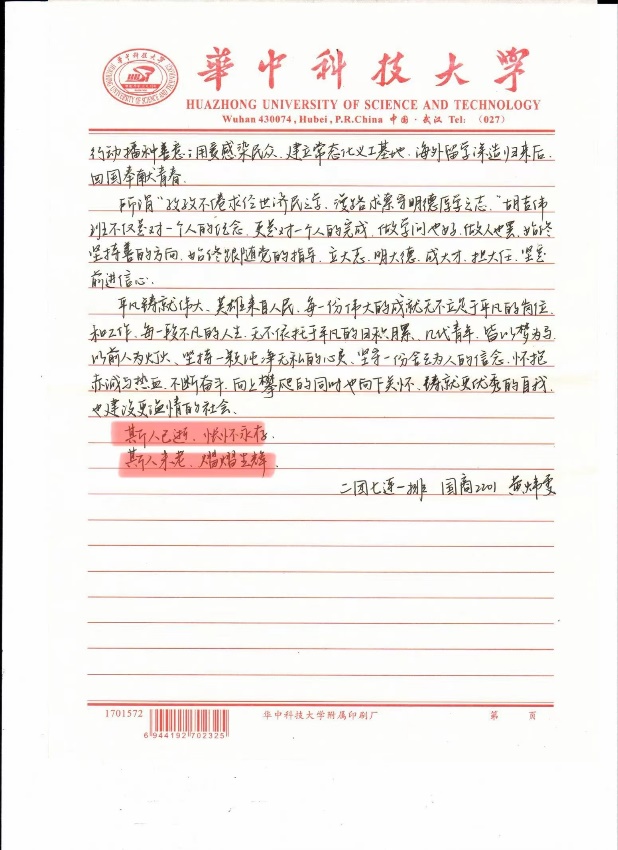 華中科技大学
HUAZHONG UNIVERSITY OF SCIENCE AND TECHNOLOGY
Wuhan 430074, Hubei, P.R.China 中国·武汉 Tel: (027)
行动播种善意；用爱感染民众、建立常态化义工基地、海外留学深造归来后
回国奉献青春。
所谓“孜孜不倦求经世济民之学、漫路求索守明德厚学之志。”胡吉伟
班不仅是对一个人的信念、更是对一个人的完成。做学问也好、做人也罢、始终
坚持善的方向、始终跟随党的指导、立大志、明大德、成大才、担大任、坚定
前进信心。
平凡铸就伟大、英雄来自人民、每一份伟大的成就无不立足于平凡的岗位
和工作、每一段不凡的人生、无不依托于平凡的日积月累、几代青年、皆以梦为马
以前人为灯火、坚持一颗纯净无私的心灵、坚守一份舍己为人的信念、怀抱
赤诚与热血、不断奋斗、向上攀爬的同时也向下关怀、铸就更优秀的自我、
也建设更温情的社会、
斯人已逝、怀永存、
斯人未老、熠熠生辉、
二团七连一排 国商2201 黄炜雯
1701572
6944192702325
华中科技大学附属印刷厂
第 页